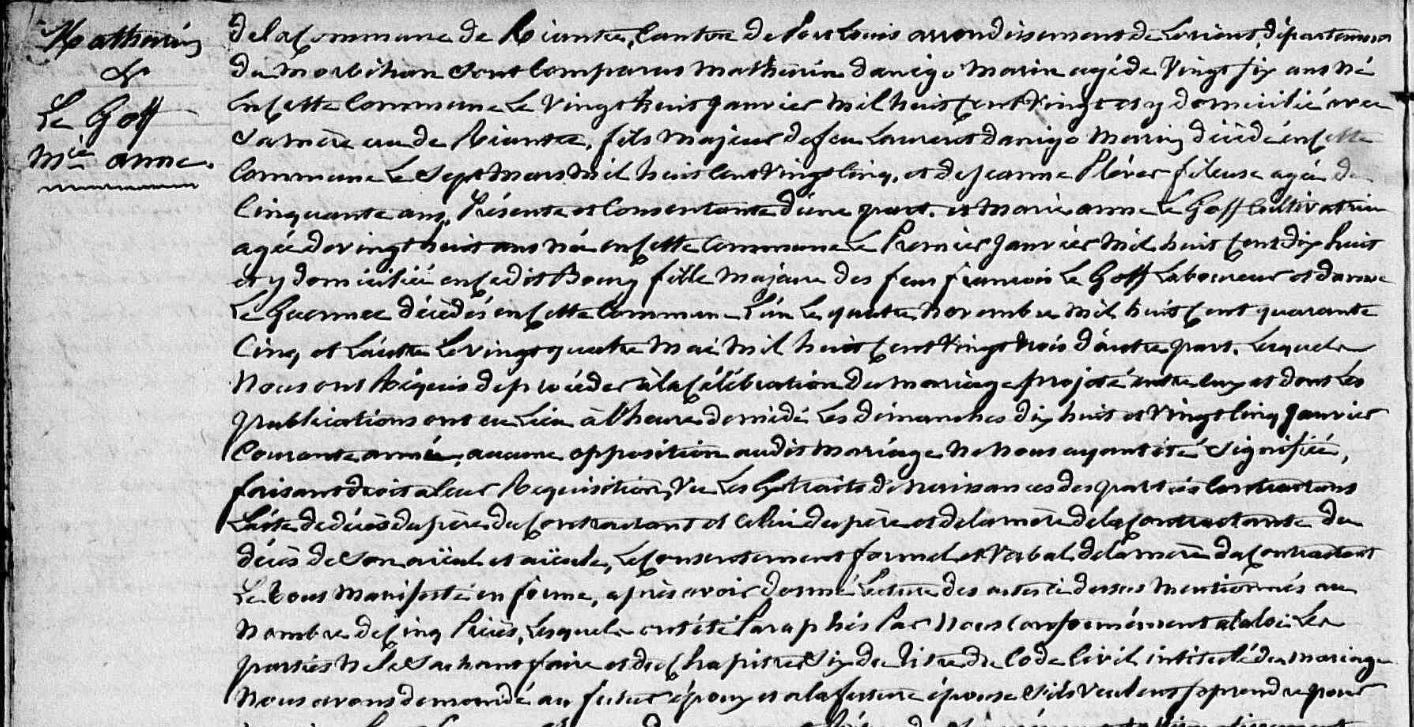 Mathurin
&
Le Goff
Mie anne.
de la Commune de Riantec, Canton de Port Louis arrondissement de Lorient, département
du Morbihan sont Comparus mathurin danigo Marin agé de Vingt six ans né
en cette Commune le Vingt huit Janvier mil huit cent Vingt et y domicilié avec
sa mère de Riantec, fils majeur de feu Laurent danigo Marin décédé en cette
Commune le sept Mars mil huit cent Vingt Cinq, et de Jeanne Pléver fileuse agée de
Cinquante ans, Présente et Consentante d'une part. et Marie anne Le Goff Cultivatrice
agée de vingt huit ans née en cette Commune le Premier Janvier mil huit cent dix huit
et y domiciliée en ce dit Bourg fille Majeure des feus francois Le Goff Laboureur et d'anne
Le Guennec décédés en cette Commune L'un le quatre Novembre mil huit cent quarante
Cinq et L'autre le vingt quatre Mai mil huit cent Vingt trois d'autre part. Lesquels
Nous ont Requis de procéder à la Célébration du mariage projeté entre eux et dont les
publications ont eu Lieu à l'heure de midi les dimanches dix huit et Vingt Cinq Janvier
Courante année, aucune opposition au dit Mariage ne Nous ayant été signifiée,
faisant droit a leur Requisition, Vu les Extraits de Naissances des parties Contractans
L'acte de décès du père du Contractant et celui du père et de la mère de la Contractante du
décès de son aïeul et aïeule, le Consentement formel et Verbal de la mère du Contractant
Le tous Manifesté en forme, après avoir donné Lecture des actes ci dessus Mentionnés au
Nombre de Cinq Pièces, Lesquels ont été Paraphés Par Nous conformément à la loi les
parties Ne le Sachant faire et du Chapitre six du titre du Code Civil intitulé du mariage
Nous avons demandé au futur époux et a la future épouse s'ils veulent se prendre pour